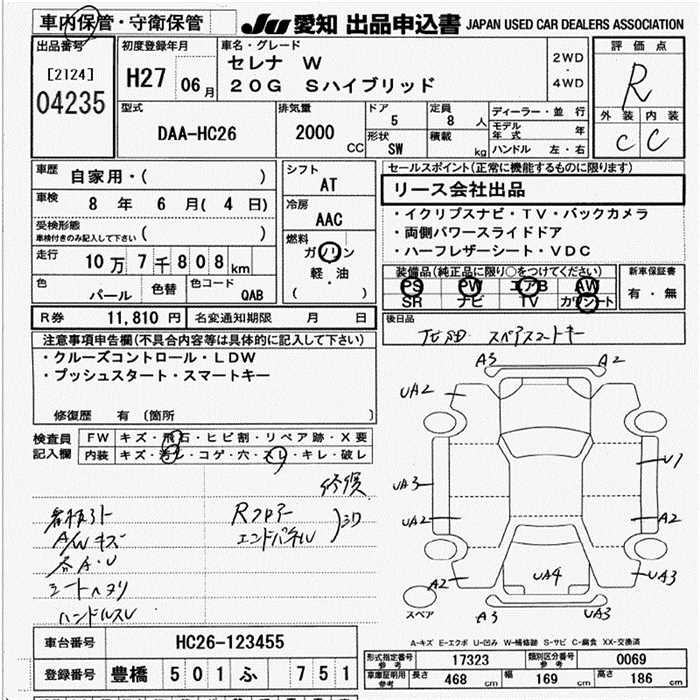 車内保管・守衛保管
JU 愛知 出品申込書 JAPAN USED CAR DEALERS ASSOCIATION
出品番号
[2124]
04235
初度登録年月
H27 06月
車名・グレード
セレナ W
20G Sハイブリッド
2WD
・
4WD
評価点
R
外装 内装
C C
型式
DAA-HC26
排気量
2000 CC
ドア
5
定員
8 人
形状
SW
積載
kg
ディーラー・並行
モデル年式 年
ハンドル 左・右
車歴
自家用・( )
車検
8 年 6 月( 4 日)
受検形態
車検付きのみ記入して下さい ( )
走行
10万7千808km
色
パール
色替
色コード
QAB
シフト
AT
冷房
AAC
燃料
ガソリン
軽・油
( )
セールスポイント(正常に機能するものに限ります)
リース会社出品
・イクリプスナビ・TV・バックカメラ
・両側パワースライドドア
・ハーフレザーシート・VDC
装備品(純正品に限り○をつけてください)
PS PW エアB AW
SR ナビ TV カワシート
新車保証書
有・無
R券 11,810 円
名変通知期限 月 日
後日品
スペアスマートキー
注意事項申告欄(不具合内容等は具体的に記入して下さい)
・クルーズコントロール・LDW
・プッシュスタート・スマートキー
修復歴 有 〔箇所 〕
検査員
記入欄
FW キズ・飛石・ヒビ割・リペア跡・X要
内装 キズ・汚レ・コゲ・穴・スレ・キレ・破レ
修復
看板跡
A/Wキズ
各A・U
シートヘタリ
ハンドルスレ
Rフロアー
エンドパネル
A3 A2
UA2
U1
UA3
UA2
A2
A2
UA4
UA3
スペア
A3 UA3
A-キズ E-エクボ U-凹み W-補修跡 S-サビ C-腐食 XX-交換済
車台番号 HC26-123455
登録番号 豊橋 501 ふ 751
型式指定番号
参考
17323
類別区分番号
参考
0069
車庫証明用
参考
長さ 468 cm
幅 169 cm
高さ 186 cm